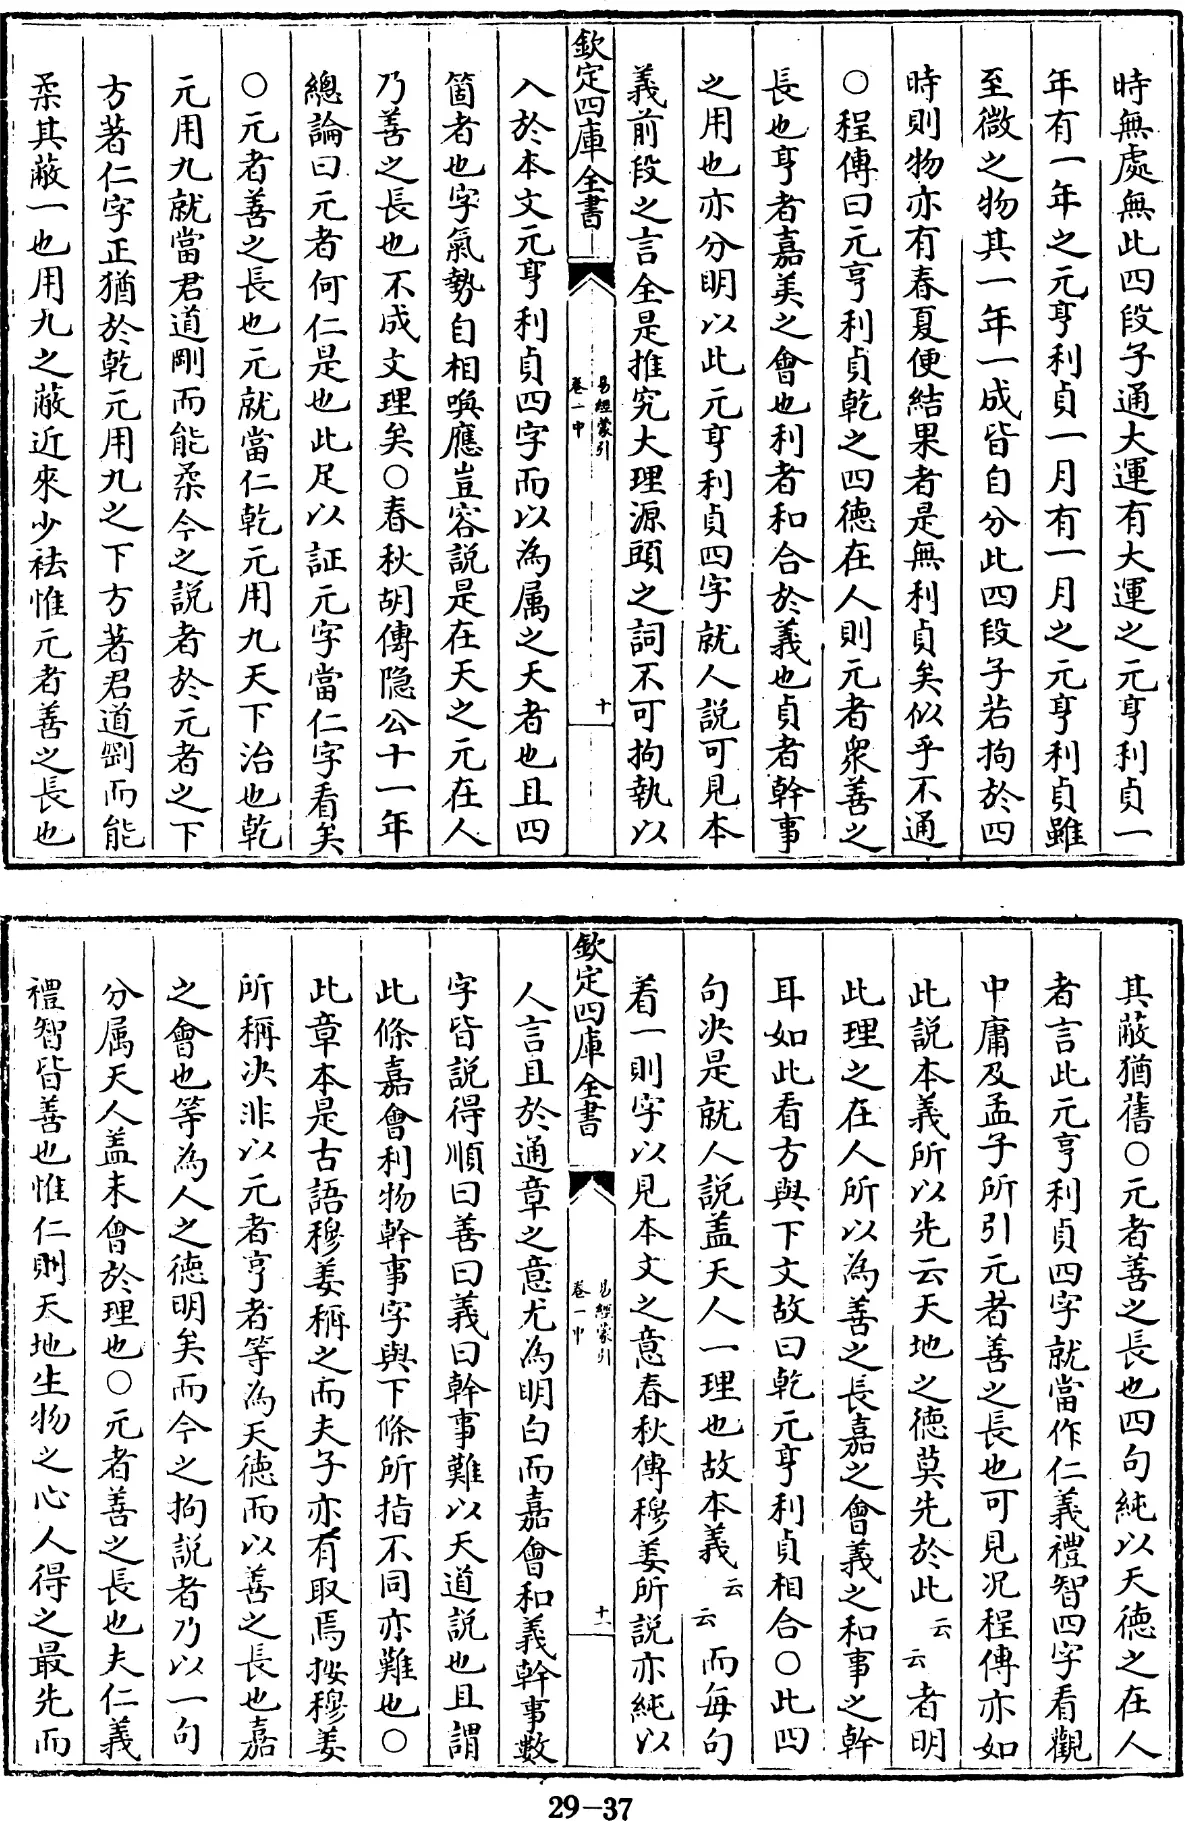 時無處無此四段子通大運有大運之元亨利貞一
年有一年之元亨利貞一月有一月之元亨利貞雖
至微之物其一年一成皆自分此四段子若拘於四
時則物亦有春夏便結果者是無利貞矣似乎不通
○程傳曰元亨利貞乾之四德在人則元者衆善之
長也亨者嘉美之會也利者和合於義也貞者幹事
之用也亦分明以此元亨利貞四字就人説可見本
義前段之言全是推究大理源頭之詞不可拘執以
欽定四庫全書
易經蒙引
卷一中
十
入於本文元亨利貞四字而以為属之天者也且四
箇者也字氣勢自相喚應豈容説是在天之元在人
乃善之長也不成文理矣○春秋胡傳隐公十一年
總論曰元者何仁是也此足以証元字當仁字看矣
○元者善之長也元就當仁乾元用九天下治也乾
元用九就當君道剛而能柔今之説者於元者之下
方著仁字正猶於乾元用九之下方著君道剛而能
柔其蔽一也用九之蔽近來少袪惟元者善之長也
其蔽猶舊○元者善之長也四句純以天德之在人
者言此元亨利貞四字就當作仁義禮智四字看觀
中庸及孟子所引元者善之長也可見况程傳亦如
此説本義所以先云天地之德莫先於此云云者明
此理之在人所以為善之長嘉之會義之和事之幹
耳如此看方與下文故曰乾元亨利貞相合○此四
句决是就人説盖天人一理也故本義云云而每句
着一則字以見本文之意春秋傳穆姜所説亦純以
欽定四庫全書
易經蒙引
卷一中
十一
人言且於通章之意尤為明白而嘉會和義幹事數
字皆説得順曰善曰義曰幹事難以天道説也且謂
此條嘉會利物幹事字與下條所指不同亦難也○
此章本是古語穆姜稱之而夫子亦有取焉按穆姜
所稱决非以元者亨者等為天德而以善之長也嘉
之會也等為人之德明矣而今之拘説者乃以一句
分属天人盖未會於理也○元者善之長也夫仁義
禮智皆善也惟仁則天地生物之心人得之最先而
29-37